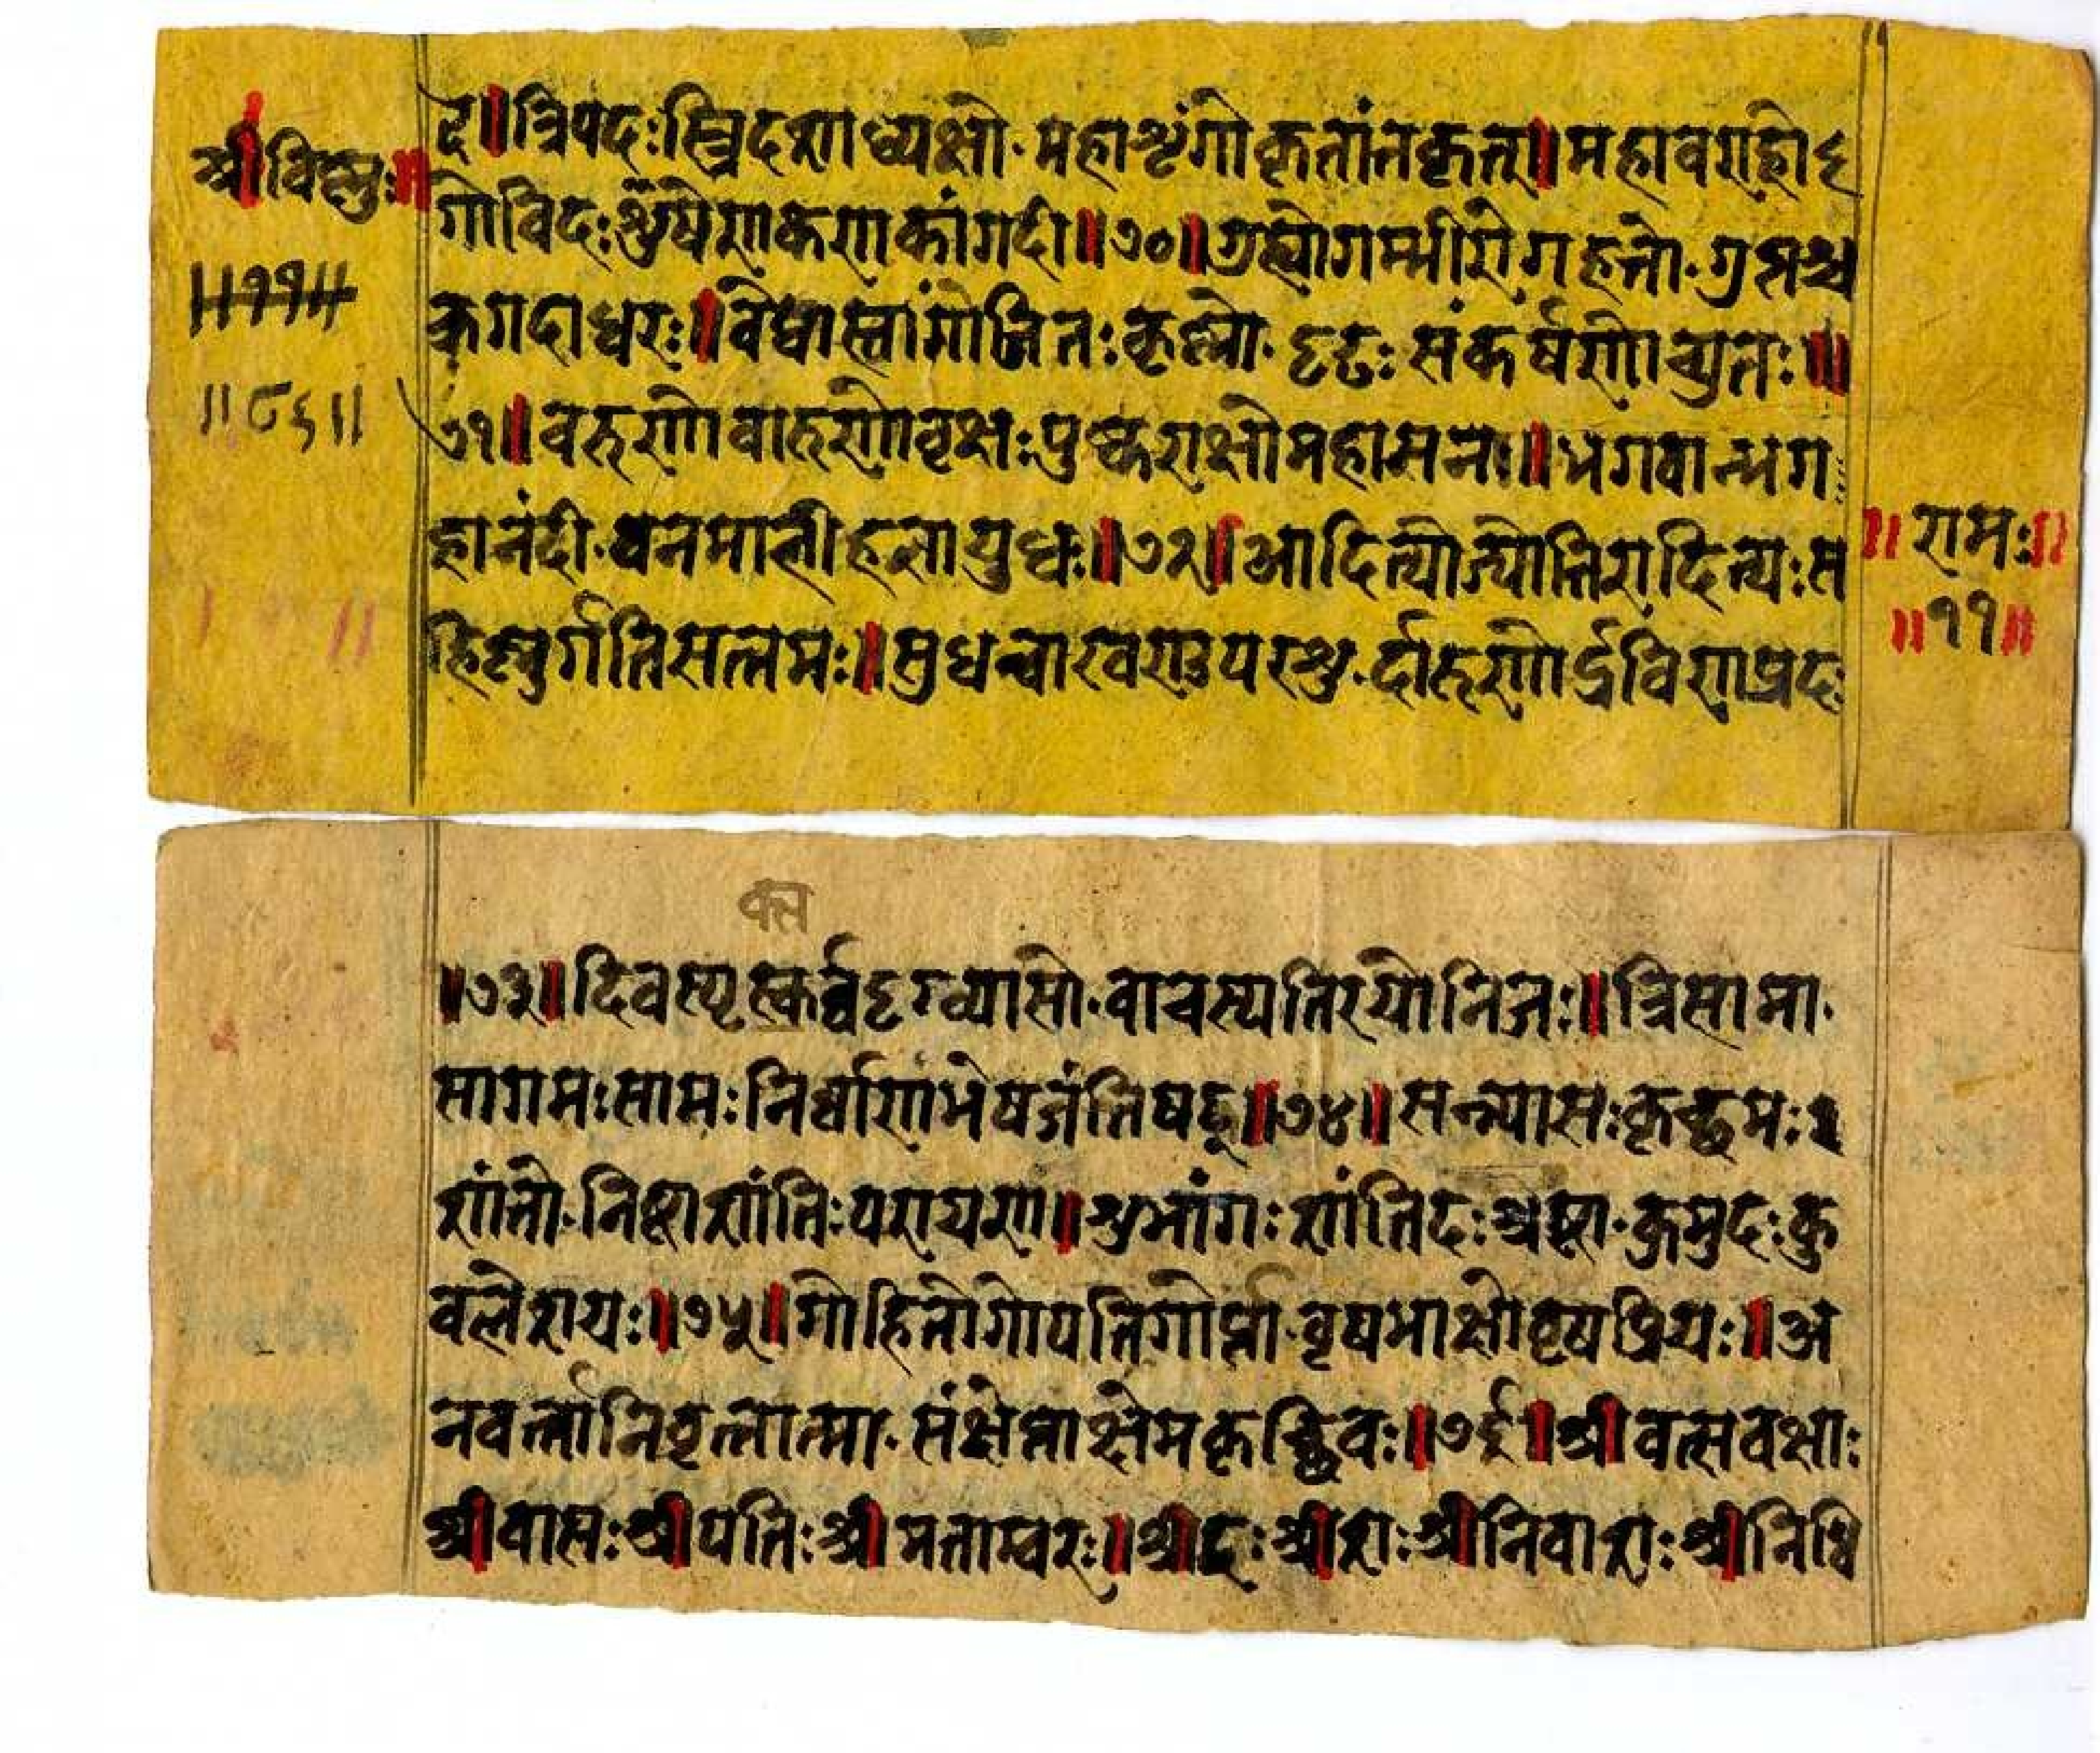 श्रीविष्णुः॥
॥११॥
॥८६॥
द॥त्रिपदःस्त्रिदशाध्यक्षो·महाशृंगोकृतांतकृत्॥महावराहो
गोविदःशुषेणाकणाकांगदी॥७०॥गुह्योगम्भीरोगहनो·गुप्तश्च
क्रगदाधरः॥वेधास्वांगोजितःकृष्णो·दृढःसंकर्षणोच्युतः॥
७१॥वरुणोवारुणोवृक्षःपुष्कराक्षोमहामनः॥भगवान्भग
हानंदी·वनमालीहलायुधः॥७२॥आदित्योज्योतिरादित्यःस
हिष्णुर्गतिसत्तमः॥सुधन्वाखण्डपरशु·र्दारुणोर्द्रविणप्रदः
॥रामः॥
॥११॥
क्त
॥७३॥दिवस्पृस्कर्व्वदृग्व्यासो·वाचस्पतिरयोनिजः॥त्रिसामा·
सागमःसामःनिर्वाणंभेषजंतिषद्॥७४॥सन्न्यासःकृच्छमः
शांतो·निष्ठाशांतिःपरायणा॥शुभांगःशांतिदःश्रष्टा·कुमुदःकु
वलेशयः॥७५॥गोहितोगोपतिर्गोप्ता·वृषभाक्षोवृषप्रियः॥अ
नवर्त्तानिवृत्तात्मा·संक्षेप्ताक्षेमकृच्छिवः॥७६॥श्रीवत्सवक्षाः
श्रीवासःश्रीपतिःश्रीमताम्वरः॥श्रीदःश्रीशःश्रीनिवाशःश्रीनिधि